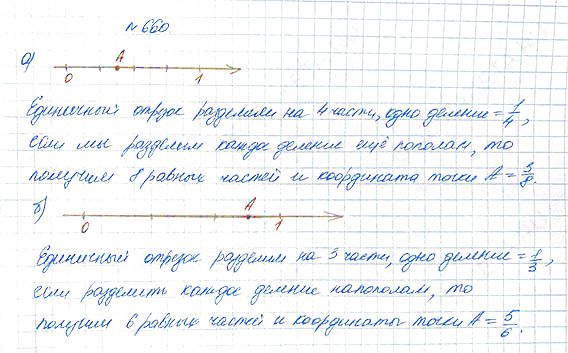 № 660.
а)
А
0 1
Единичный отрезок разделили на 4 части, одно деление = 1/4,
если мы разделим каждое деление ещё пополам, то
получим 8 равных частей и координата точки А = 3/8.
б)
А
0 1
Единичный отрезок разделим на 3 части, одно деление = 1/3,
если разделить каждое деление напополам, то
получим 6 равных частей и координаты точки А = 5/6.